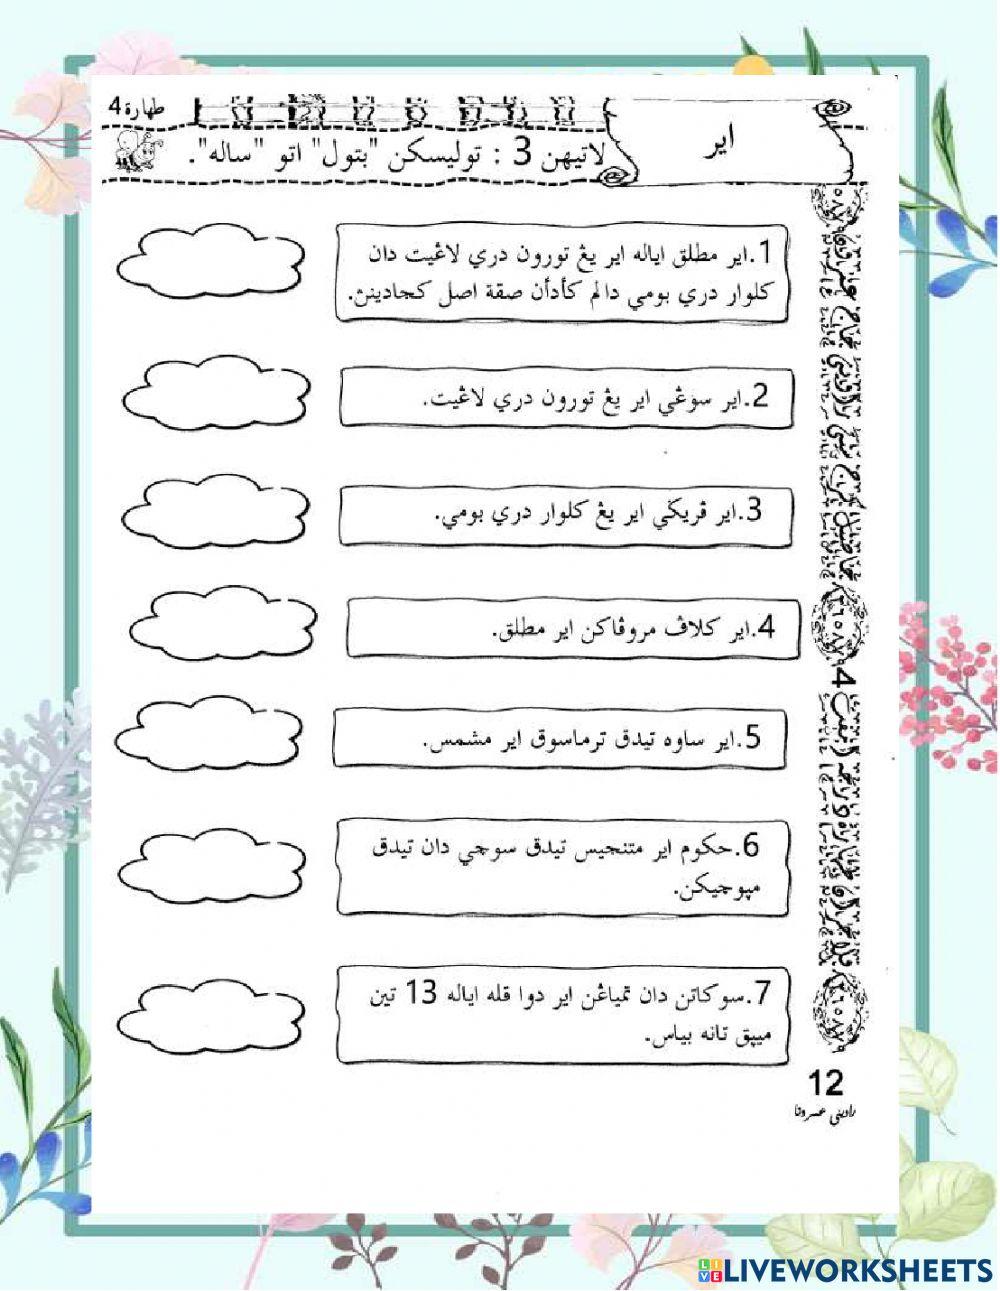 طهارة 4
اير
لاتيهن 3 : توليسكن "بتول" اتو "ساله".
1. اير مطلق اياله اير يڠ تورون دري لاڠيت دان
كلوار دري بومي دالم كأدأن صفة اصل كجادينڽ.
2. اير سوڠي اير يڠ تورون دري لاڠيت.
3. اير ڤريݢي اير يڠ كلوار دري بومي.
4. اير كلاڤ مروڤاكن اير مطلق.
5. اير ساوه تيدق ترماسوق اير مشمس.
6. حكوم اير متنجيس تيدق سوچي دان تيدق
مپوچيكن.
7. سوكاتن دان تمباڠن اير دوا قله اياله 13 تين
ميپق تانه بياس.
12
LIVEWORKSHEETS